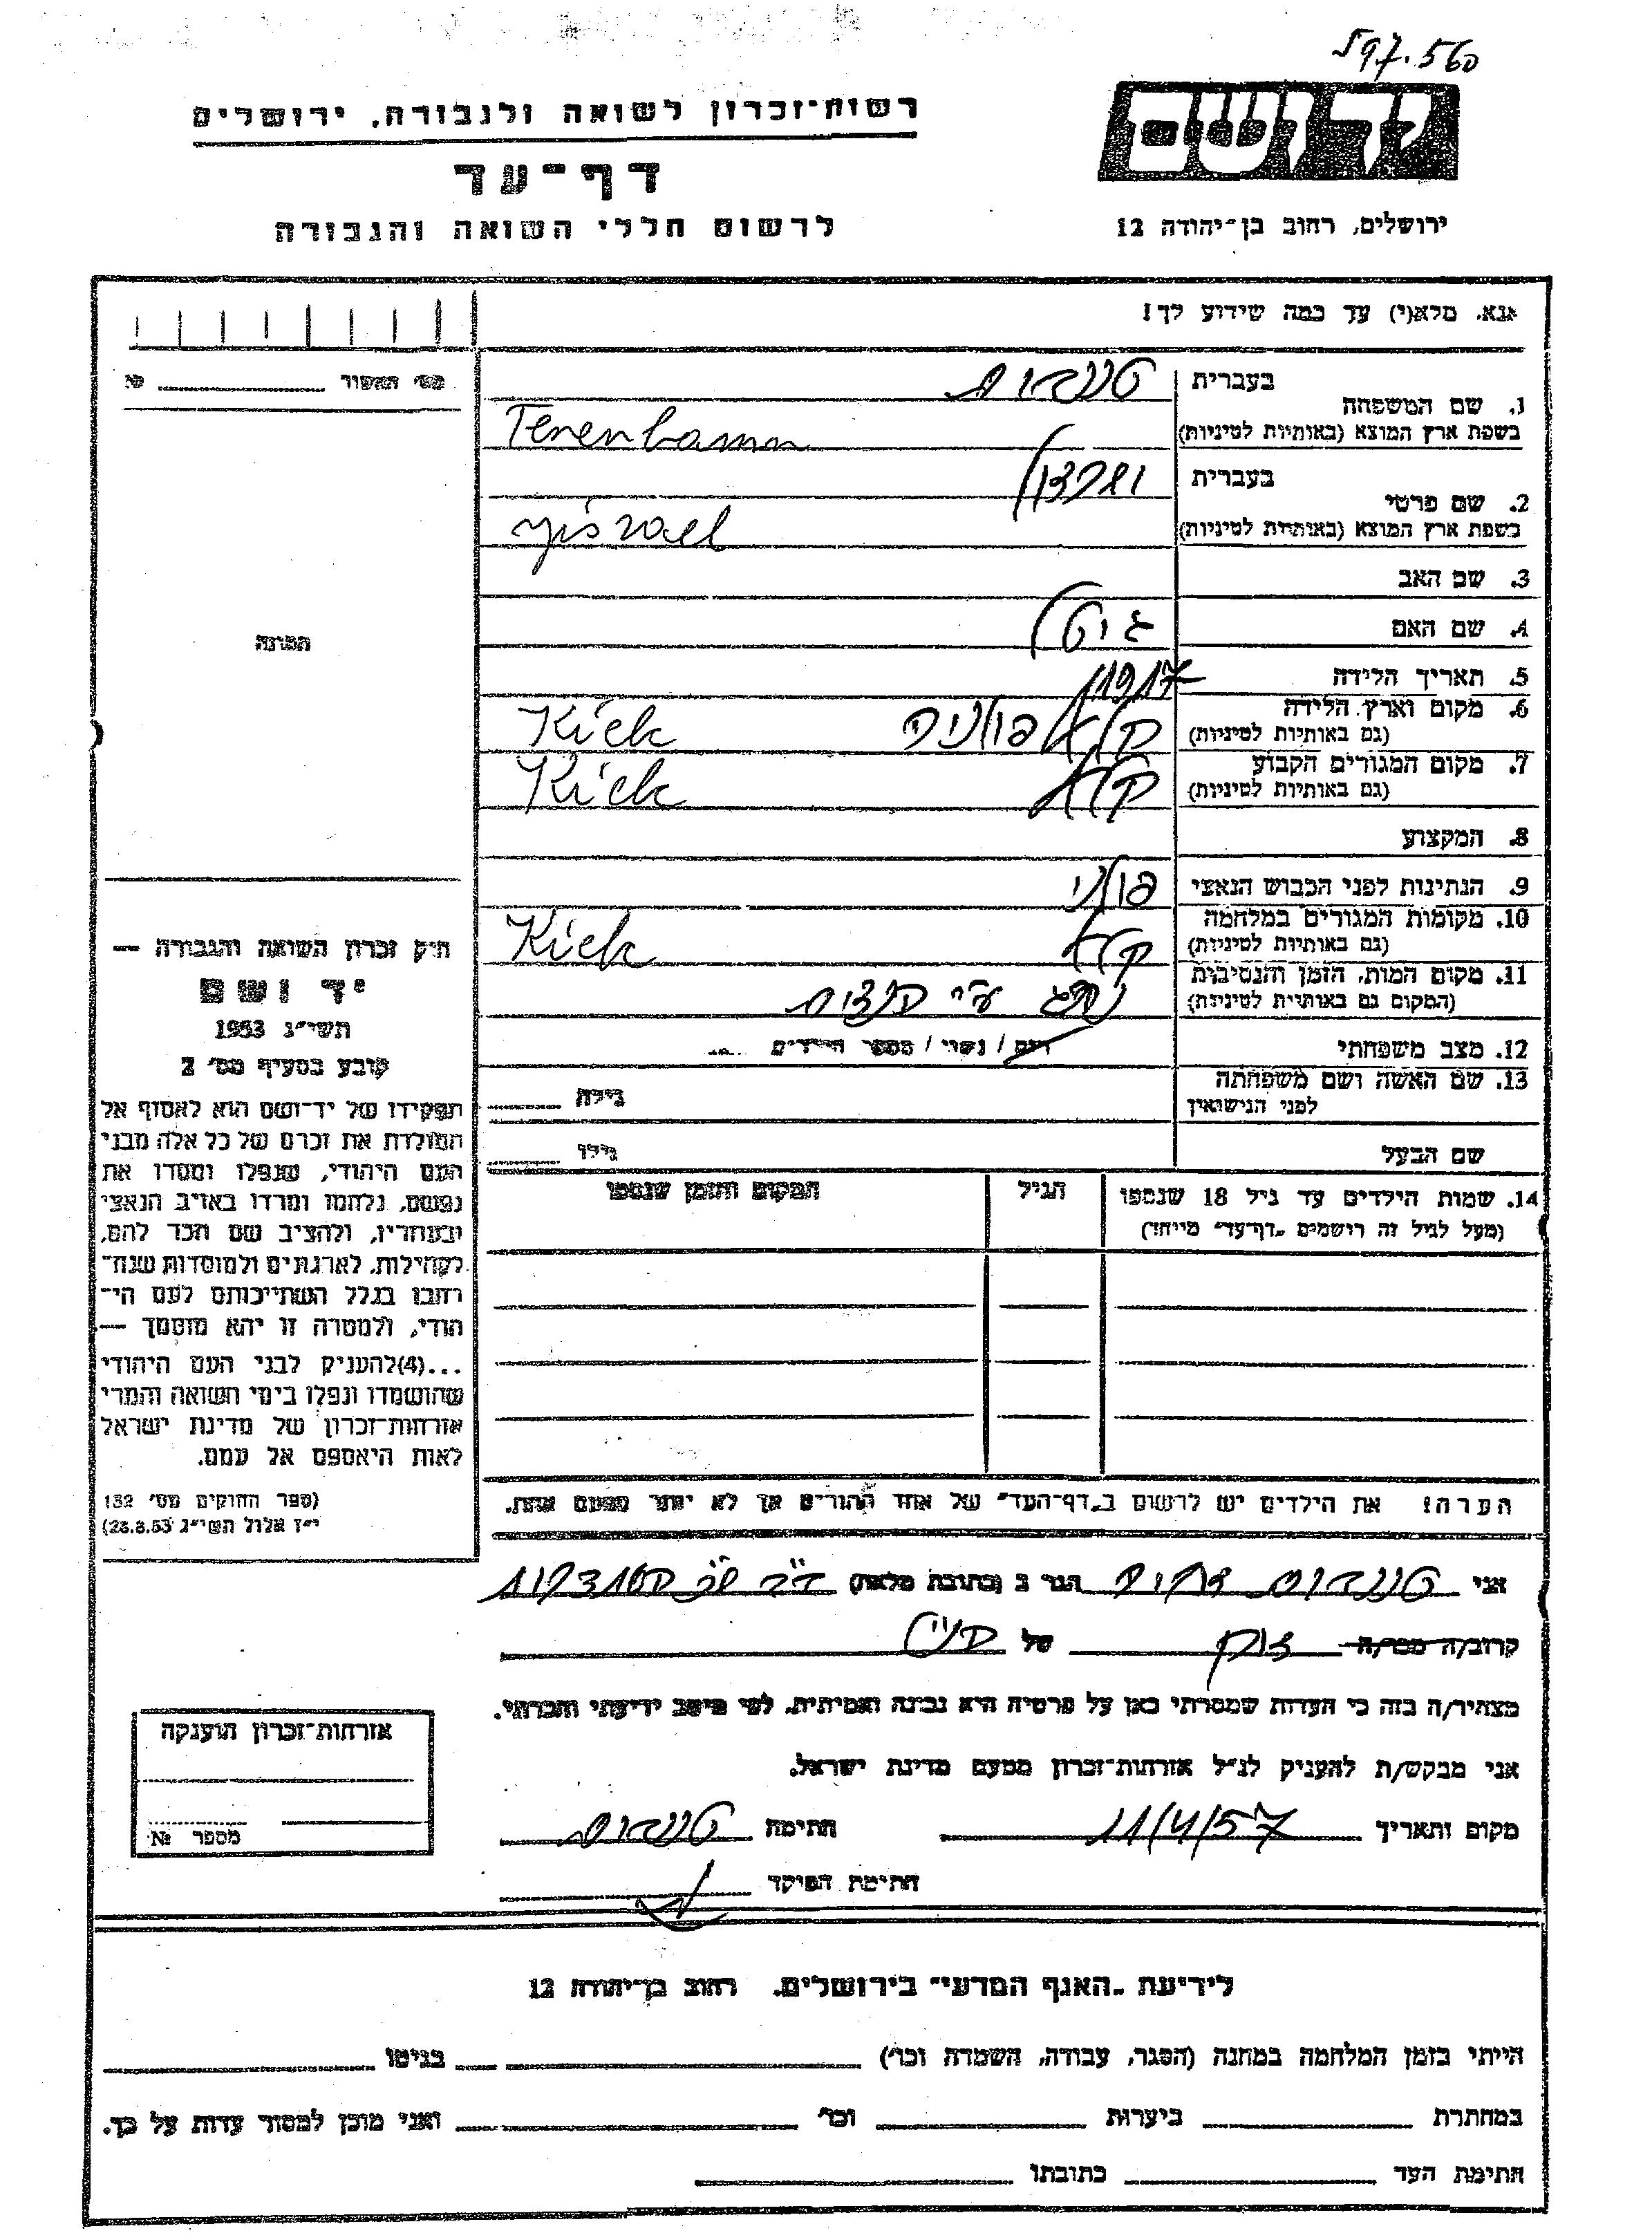 597.560
ידושם
רשות־זכרון לשואה ולגבורה, ירושלים
דף־עד
לרשום חללי השואה והגבורה
ירושלים, רחוב בן־יהודה 12
אנא, מלא(י) עד כמה שידוע לך!
מס׳ האשור №
1. שם המשפחה
בעברית
בשפת ארץ המוצא (באותיות לטיניות)
Tenenbaum
2. שם פרטי
בעברית
בשפת ארץ המוצא (באותיות לטיניות)
yisrael
3. שם האב
4. שם האם
5. תאריך הלידה 1917
6. מקום וארץ הלידה
(גם באותיות לטיניות)
Kielc
7. מקום המגורים הקבוע
(גם באותיות לטיניות)
Kielc
8. המקצוע
9. הנתינות לפני הכבוש הנאצי פולני
10. מקומות המגורים במלחמה
(גם באותיות לטיניות)
Kielc
11. מקום המות, הזמן והנסיבות
(המקום גם באותיות לטיניות)
נהרג ע״י
12. מצב משפחתי רווק / נשוי / מספר הילדים
13. שם האשה ושם משפחתה
לפני הנישואין
גילה
שם הבעל גילו
14. שמות הילדים עד גיל 18 שנספו
(מעל לגיל זה רושמים „דף־עד״ מיוחד)
הגיל
המקום והזמן שנספו
הערה: את הילדים יש לרשום ב„דף־העד״ של אחד ההורים אך לא יותר מפעם אחת.
התמונה
חוק זכרון השואה והגבורה —
יד ושם
תשי״ג 1953
קובע בסעיף מס׳ 2
תפקידו של יד־ושם הוא לאסוף אל
המולדת את זכרם של כל אלה מבני
העם היהודי, שנפלו ומסרו את
נפשם, נלחמו ומרדו באויב הנאצי
ובעוזריו, ולהציב שם וזכר להם,
לקהילות, לארגונים ולמוסדות שנח־
רבו בגלל השתייכותם לעם הי־
הודי, ולמטרה זו יהא מוסמך —
...(4)להעניק לבני העם היהודי
שהושמדו ונפלו בימי השואה והמרי
אזרחות־זכרון של מדינת ישראל
לאות היאספם אל עמם.
(ספר החוקים מס׳ 132
י״ז אלול תשי״ג 28.8.53)
אני הגר ב (כתובת מלאה)
קרוב/ה מס׳/ה של
מצהיר/ה בזה כי העדות שמסרתי כאן על פרטיה היא נכונה ואמיתית, לפי מיטב ידיעתי והכרתי.
אני מבקש/ת להעניק לנ״ל אזרחות־זכרון מטעם מדינת ישראל.
מקום ותאריך 11/4/57 חתימה
חתימת הפוקד
אזרחות־זכרון הוענקה
מספר №
לידיעת „האגף המדעי״ בירושלים, רחוב בן־יהודה 12
הייתי בזמן המלחמה במחנה (הסגר, עבודה, השמדה וכו׳) בגיטו
במחתרת ביערות וכו׳ ואני מוכן למסור עדות על כך.
חתימת העד כתובתו